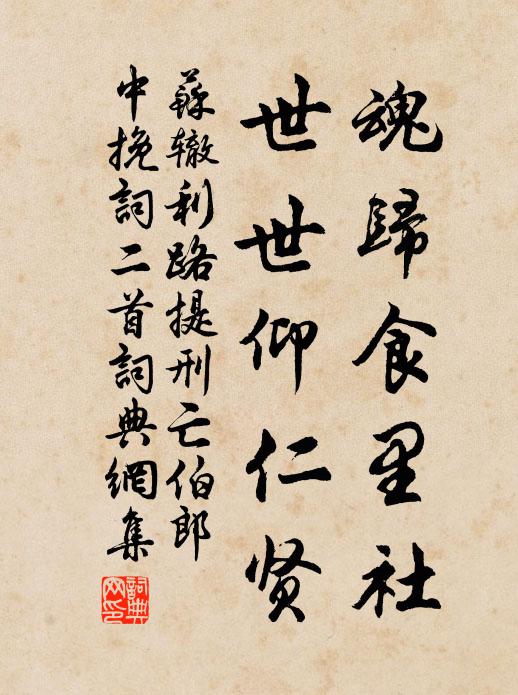 魂歸食里社
世世仰仁贤
蘇辙利路提刑亡伯郎
中挽詞二首詞典網集
詞典网印